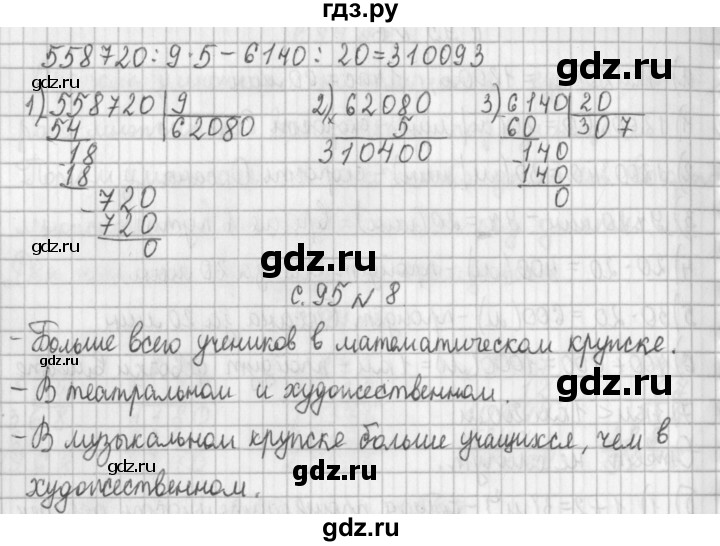 гдз.ру
558720:9·5-6140:20=310093
1) 558720 | 9
54
62080
18
18
720
720
0
2) 62080
× 5
310400
3) 6140 | 20
60
307
140
140
0
с.95 № 8
- Больше всего учеников в математическом крупске.
- В театральном и художественном.
- В музыкальном крупске больше учащихся, чем в
художественном.
gdz.ru
gdz.ru
gdz.ru
gdz.ru
gdz.ru
gdz.ru
gdz.ru
gdz.ru
gdz.ru
gdz.ru
gdz.ru
gdz.ru
gdz.ru